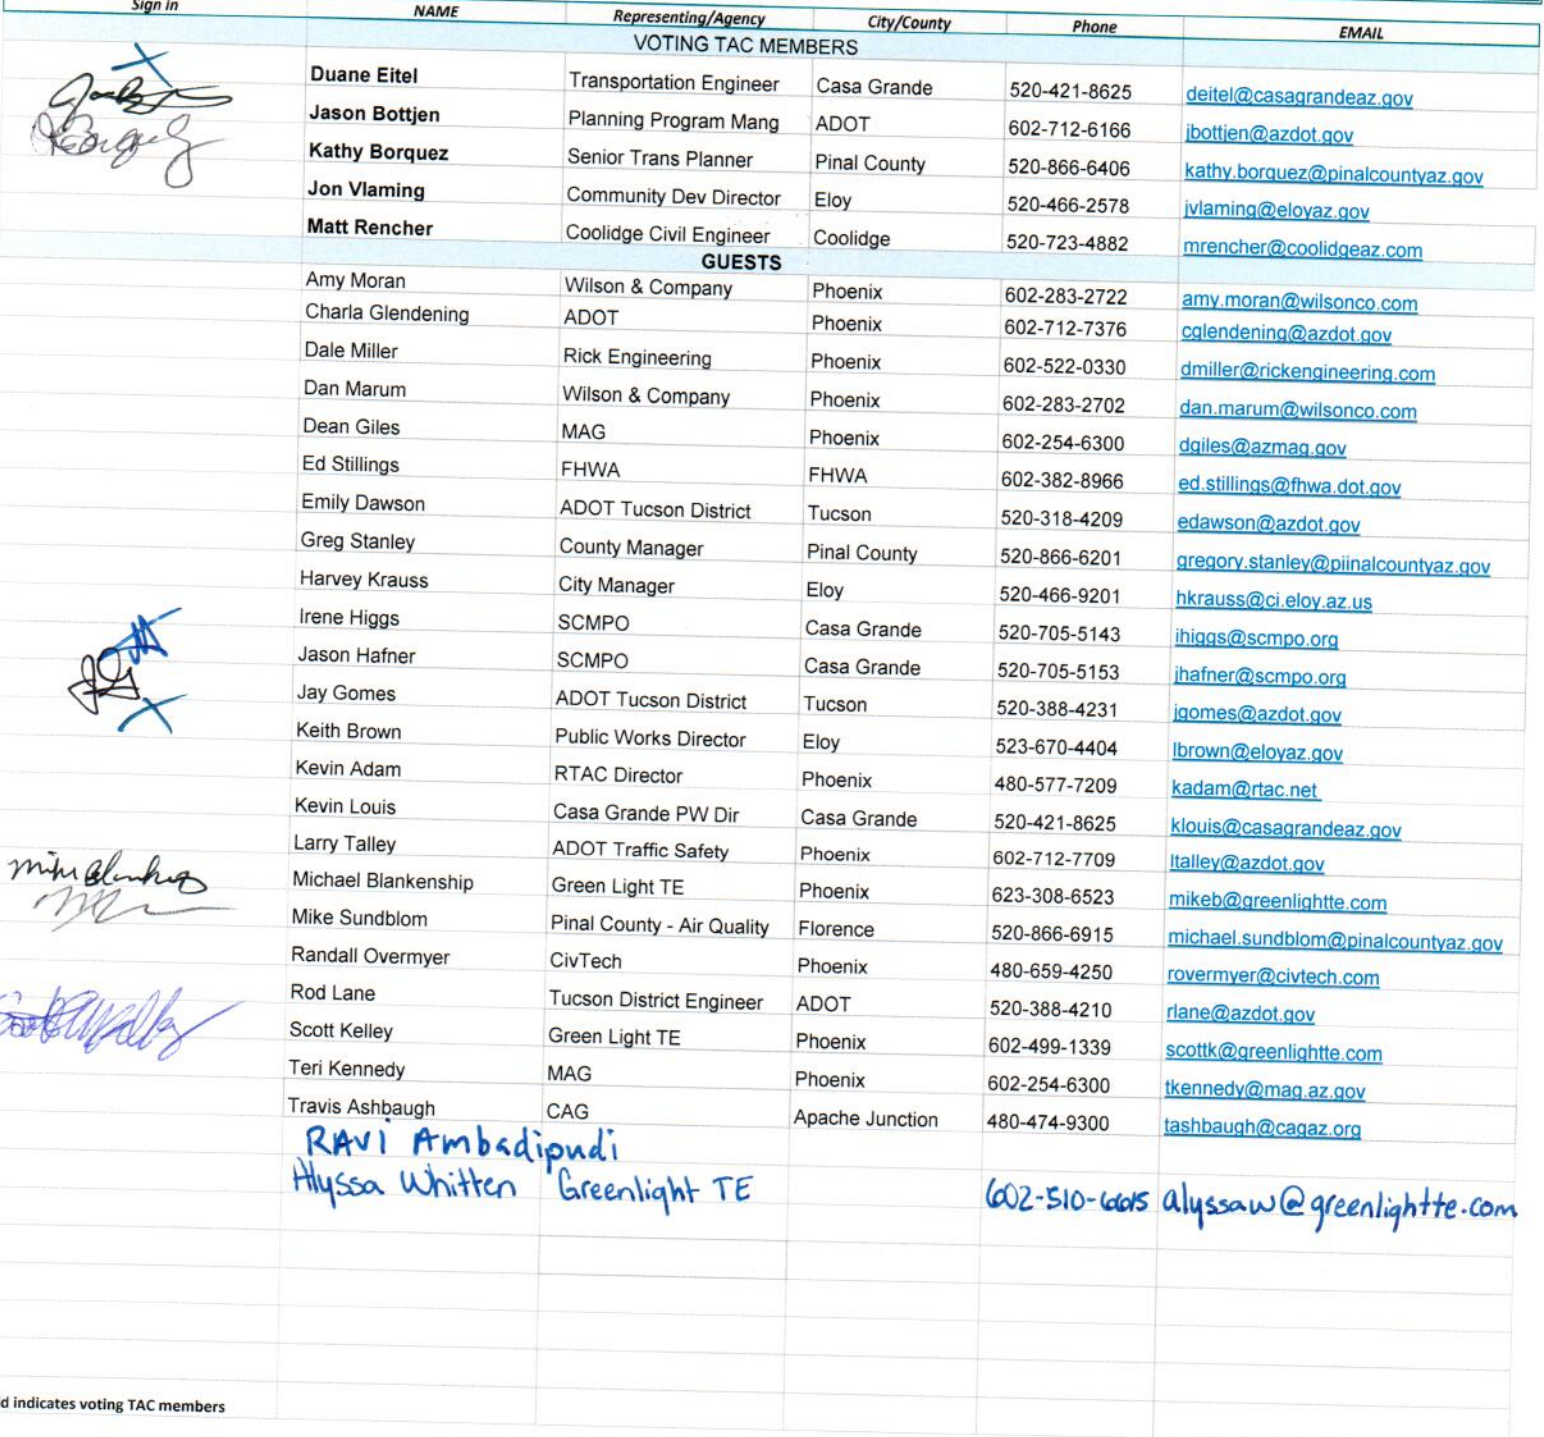 Sign in NAME Representing/Agency City/County Phone EMAIL
VOTING TAC MEMBERS
Duane Eitel Transportation Engineer Casa Grande 520-421-8625 deitel@casagrandeaz.gov
Jason Bottjen Planning Program Mang ADOT 602-712-6166 jbottjen@azdot.gov
Kathy Borquez Senior Trans Planner Pinal County 520-866-6406 kathy.borquez@pinalcountyaz.gov
Jon Vlaming Community Dev Director Eloy 520-466-2578 jvlaming@eloyaz.gov
Matt Rencher Coolidge Civil Engineer Coolidge 520-723-4882 mrencher@coolidgeaz.com
GUESTS
Amy Moran Wilson & Company Phoenix 602-283-2722 amy.moran@wilsonco.com
Charla Glendening ADOT Phoenix 602-712-7376 cglendening@azdot.gov
Dale Miller Rick Engineering Phoenix 602-522-0330 dmiller@rickengineering.com
Dan Marum Wilson & Company Phoenix 602-283-2702 dan.marum@wilsonco.com
Dean Giles MAG Phoenix 602-254-6300 dgiles@azmag.gov
Ed Stillings FHWA FHWA 602-382-8966 ed.stillings@fhwa.dot.gov
Emily Dawson ADOT Tucson District Tucson 520-318-4209 edawson@azdot.gov
Greg Stanley County Manager Pinal County 520-866-6201 gregory.stanley@piinalcountyaz.gov
Harvey Krauss City Manager Eloy 520-466-9201 hkrauss@ci.eloy.az.us
Irene Higgs SCMPO Casa Grande 520-705-5143 ihiggs@scmpo.org
Jason Hafner SCMPO Casa Grande 520-705-5153 jhafner@scmpo.org
Jay Gomes ADOT Tucson District Tucson 520-388-4231 jgomes@azdot.gov
Keith Brown Public Works Director Eloy 523-670-4404 lbrown@eloyaz.gov
Kevin Adam RTAC Director Phoenix 480-577-7209 kadam@rtac.net
Kevin Louis Casa Grande PW Dir Casa Grande 520-421-8625 klouis@casagrandeaz.gov
Larry Talley ADOT Traffic Safety Phoenix 602-712-7709 ltalley@azdot.gov
Michael Blankenship Green Light TE Phoenix 623-308-6523 mikeb@greenlightte.com
Mike Sundblom Pinal County - Air Quality Florence 520-866-6915 michael.sundblom@pinalcountyaz.gov
Randall Overmyer CivTech Phoenix 480-659-4250 rovermyer@civtech.com
Rod Lane Tucson District Engineer ADOT 520-388-4210 rlane@azdot.gov
Scott Kelley Green Light TE Phoenix 602-499-1339 scottk@greenlightte.com
Teri Kennedy MAG Phoenix 602-254-6300 tkennedy@mag.az.gov
Travis Ashbaugh CAG Apache Junction 480-474-9300 tashbaugh@cagaz.org
RAVI Ambadipudi
Alyssa Whitten Greenlight TE alyssaw@greenlightte.com
d indicates voting TAC members